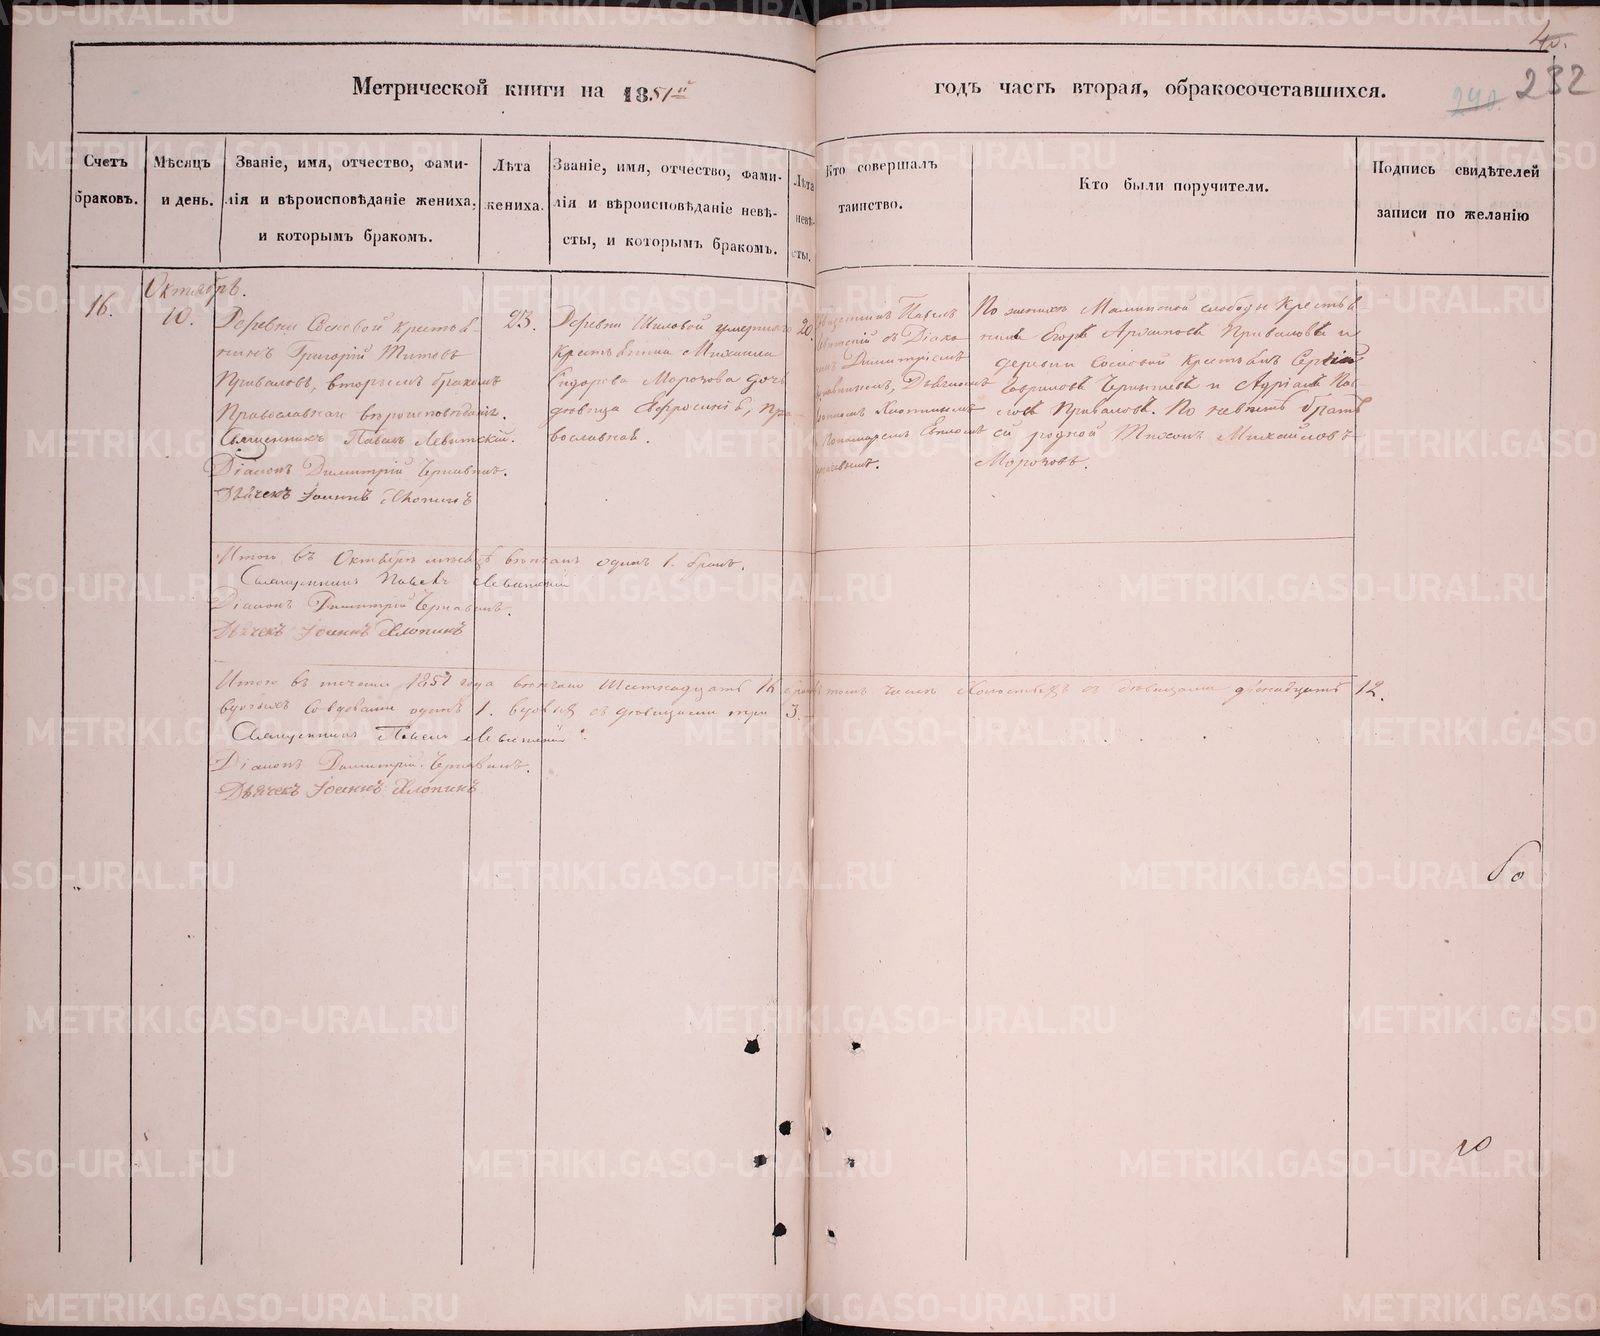 Метрической книги на 1851й годъ часть вторая, обракосочетавшихся.
45.
240.
232
Счетъ браковъ.
Мѣсяцъ и день.
Званіе, имя, отчество, фами-
лія и вѣроисповѣданіе жениха,
и которымъ бракомъ.
Лѣта
жениха.
Званіе, имя, отчество, фами-
лія и вѣроисповѣданіе невѣ-
сты, и которымъ бракомъ.
Лѣта
невѣ-
сты.
Кто совершалъ
таинство.
Кто были поручители.
Подпись свидѣтелей
записи по желанію
16.
Октябрь.
10.
Деревни Сосновой крестья-
нинъ Григорій Титовъ
Приваловъ, вторымъ бракомъ
Православнаго вѣроисповѣданія.
Священникъ Павелъ Левитскій.
Діаконъ Димитрій Чернавинъ.
Дьячекъ Іоаннъ Хлопинъ
23.
Деревни Шиловой умершаго
крестьянина Михаила
Сидорова Морозова дочь
дѣвица Евфросинія, пра-
вославная.
20.
Священникъ Павелъ
Левитскій съ Діако-
номъ Димитріемъ
Чернавинымъ, Дьячкомъ
Іоанномъ Хлопинымъ
и Пономаремъ
По женихѣ Маминской слободы крестья-
нинъ Егоръ Приваловъ и
деревни Сосновой крестьянъ Сергій
Гавриловъ и Адріанъ
Приваловъ. По невѣстѣ братъ
ей родной Тихонъ Михайловъ
Морозовъ.
Итого въ Октябрѣ мѣсяцѣ вѣнчанъ одинъ 1. бракъ.
Священникъ Павелъ Левитскій
Діаконъ Димитрій Чернавинъ.
Дьячекъ Іоаннъ Хлопинъ
Итого въ теченіи 1851 года вѣнчано Шестнадцать 16 въ томъ числѣ Холостыхъ съ дѣвицами двенадцать 12.
вдовыхъ со вдовами одинъ 1. вдовыхъ съ дѣвицами три 3.
Священникъ Павелъ Левитскій
Діаконъ Димитрій Чернавинъ.
Дьячекъ Іоаннъ Хлопинъ
METRIKI.GASO-URAL.RU